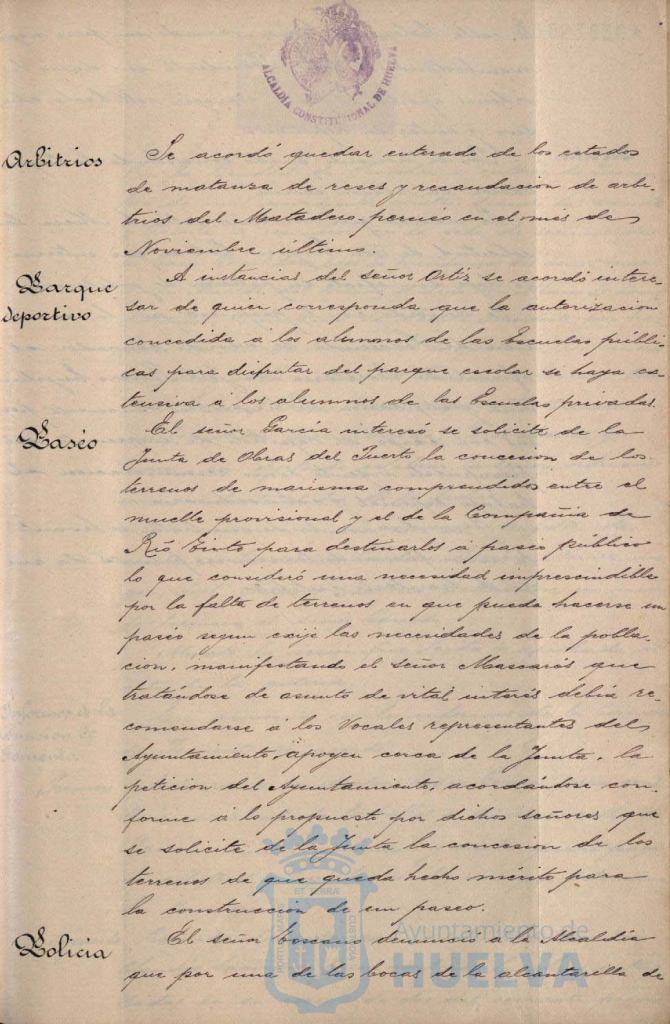 ALCALDÍA CONSTITUCIONAL DE HUELVA
Arbitrios
Se acordó quedar enterado de los estados
de matanza de reses y recaudacion de arbi-
trios del Matadero perneo en el mes de
Noviembre último.
Parque
deportivo
A instancias del señor Ortiz se acordó intere-
sar de quien corresponda que la autorizacion
concedida á los alumnos de las Escuelas públi-
cas para disfrutar del parque escolar se haga es-
tensiva á los alumnos de las Escuelas privadas.
Paséo
El señor García interesó se solicite de la
Junta de Obras del Puerto la concesion de los
terrenos de marisma comprendidos entre el
muelle provisional y el de la Compañia de
Río Tinto para destinarlos á paseo público
lo que consideró una necesidad imprescindible
por la falta de terrenos en que pueda hacerse un
paséo segun exije las necesidades de la pobla-
cion, manifestando el señor Mascarós que
tratándose de asunto de vital interés debia re-
comendarse á los Vocales representantes del
Ayuntamiento, apoyen cerca de la Junta, la
peticion del Ayuntamiento, acordándose con-
forme á lo propuesto por dichos señores que
se solicite de la Junta la concesion de los
terrenos de que queda hecho mérito para
la construccion de un paseo.
Policia
El señor Toscano denunció á la Alcaldía
que por una de las bocas de la alcantarilla de
Ayuntamiento de
HUELVA